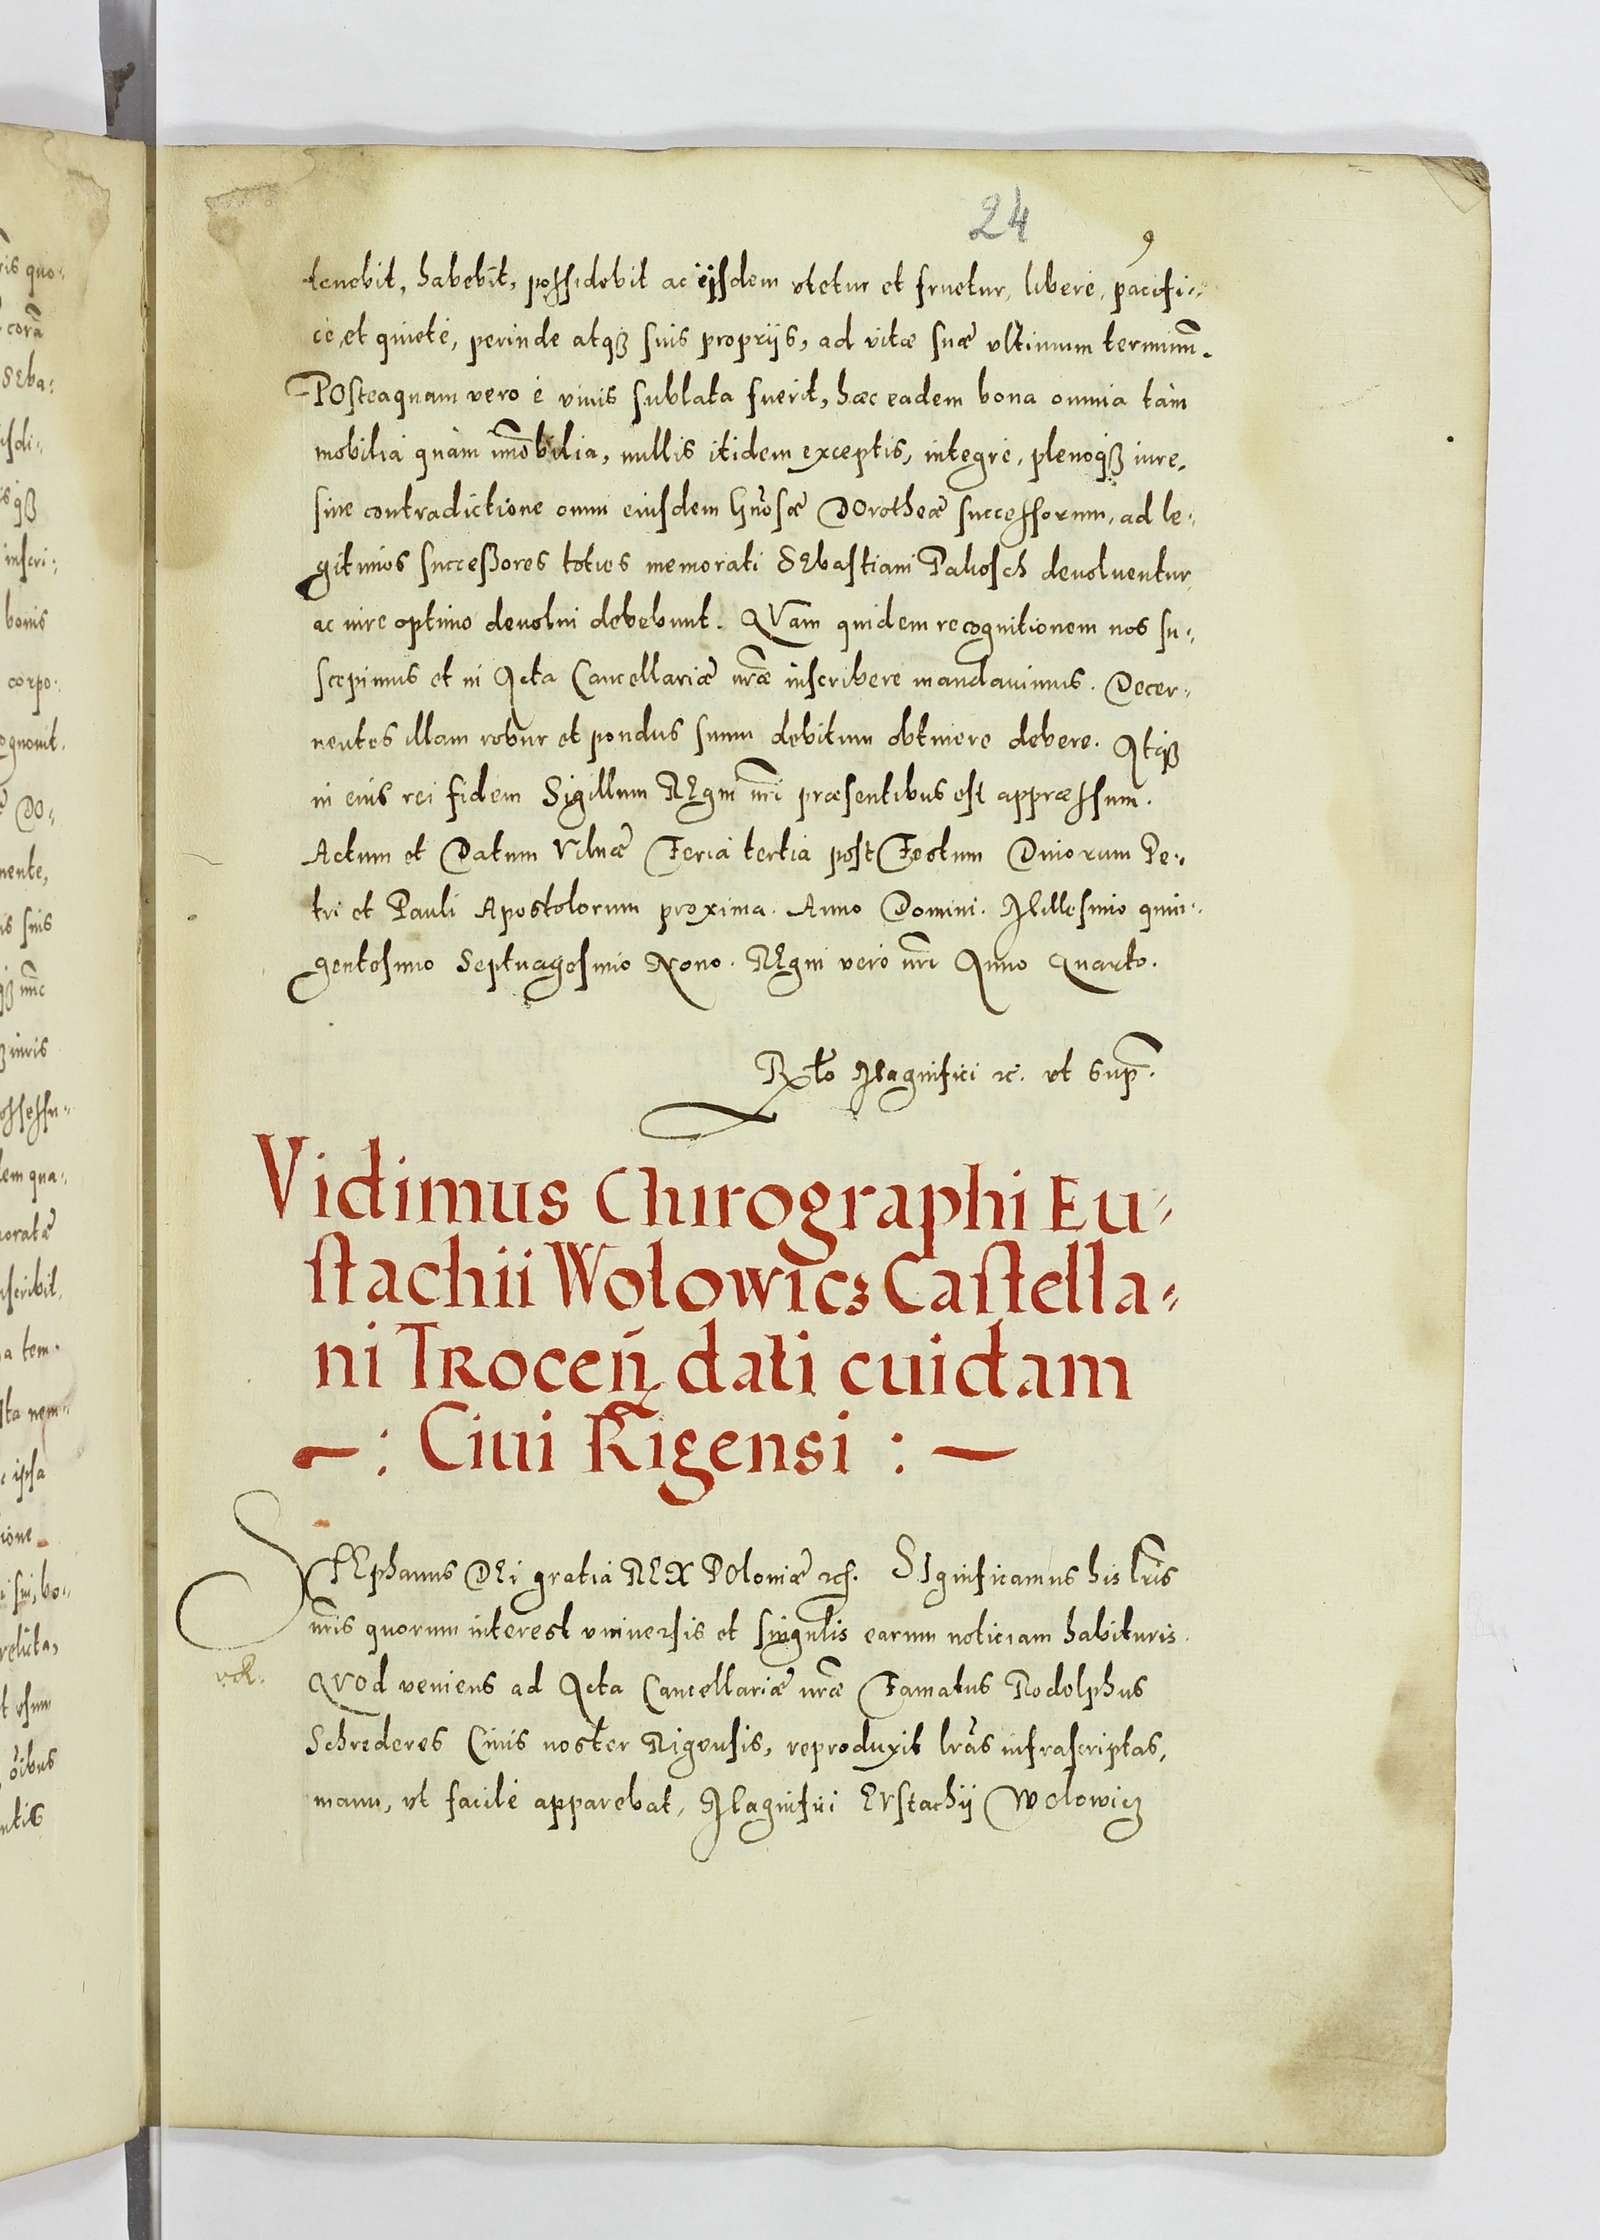 24
9
tenebit, habebit, possidebit ac ijsdem vtetur et fruetur, liberè, pacifi-
cè, et quietè, perinde atqȝ suis proprijs, ad vitæ suæ vltimum terminũ.
POsteaquam vero è viuis sublata fuerit, hæc eadem bona omnia tàm
mobilia quàm im̃obilia, nullis itidem exceptis, integrè, plenoqȝ iure,
sine contradictione omni eiusdem Gñosæ DOrotheæ successorum, ad le-
gitimos successores toties memorati SEbastiani Pakosch deuoluentur,
ac iure optimo deuolui debebunt. QVam quidem recognitionem nos su-
scepimus et in Acta Cancellariæ nr̃æ inscribere mandauimus. Decer-
nentes illam robur et pondus suum debitum obtinere debere. Atqȝ
in eius rei fidem Sigillum REgni nr̃i præsentibus est appræssum.
Actum et Datum Vilnæ Feria tertia post Festum Diuorum Pe-
tri et Pauli Apostolorum proxima. Anno Domini. Millesimo quin-
gentesimo Septuagesimo Nono. REgni vero nr̃i Anno Quarto.
Rl̃to Magnifici ꝛc. vt sup̃.
Vidimus Chirographi Eu-
stachii Wolowicz Castella-
ni Trocen̄ dati cuidam
Ciui Rigensi
STEphanus DEi gratia REX POloniæ ꝛc. SIgnificamus his lr̃is
nr̃is quorum interest vniuersis et singulis earum noticiam habituris.
QVod veniens ad Acta Cancellariæ nr̃æ Famatus Rodolphus
Schrederes Ciuis noster Rigensis, reproduxit lr̃as infrascriptas,
manu, vt facilè apparebat, Magnifici EVstachij Wolowicz